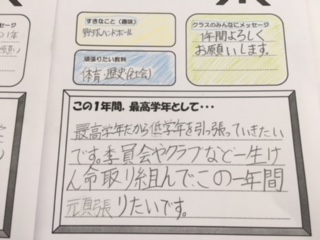 すきなこと（趣味）
野球、ハンドボール
頑張りたい教科
体育・歴史(社会)
クラスのみんなにメッセージ
1年間よろしく
お願いします。
この1年間、最高学年として・・・
最高学年だから低学年を引っ張っていきたい
です。委員会やクラブなど一生け
ん命取り組んで、この一年間
頑張りたいです。